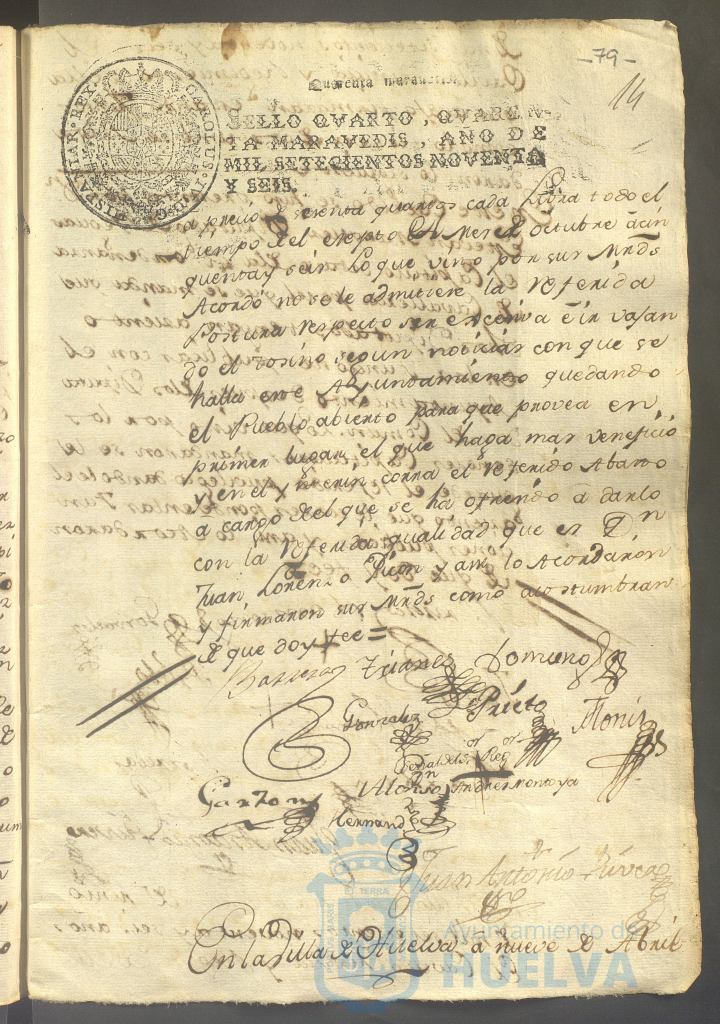 -79-
14
Quarenta maravedis
HISPANIAR · REX · CAROLUS · IIII · D · G ·
SELLO QVARTO, QVAREN-
TA MARAVEDIS, AÑO DE
MIL SETECIENTOS NOVENTA
Y SEIS.
a precio de sesenta quartos cada Libra todo el
tiempo del excepto el Mes de octubre a cin
quenta y seis Lo que visto por sus Mrds
Acordó no se le admitiere la referida
Postura respecto ser excesiva e ir vajan
do el tosino segun noticias con que se
halla este Ayuntamiento quedando
el Pueblo abierto para que provea en
primer lugar el que haga mas veneficio
y en el interin corra el referido Abasto
a cargo del que se ha ofrecido a darlo
con la referida qualidad que es Dn
Juan Lorenzo Picon y asi lo Acordaron
y firmaron sus Mrds como acostumbran
de que doy fee =
Barrera Trianes Domingo
Gonzalez Prieto Monis
Garzon Alonso Andres Montoya
Hernand
Juan Antonio Rivera
En la Villa de Huelva a nueve de Abril
Ayuntamiento de
HUELVA